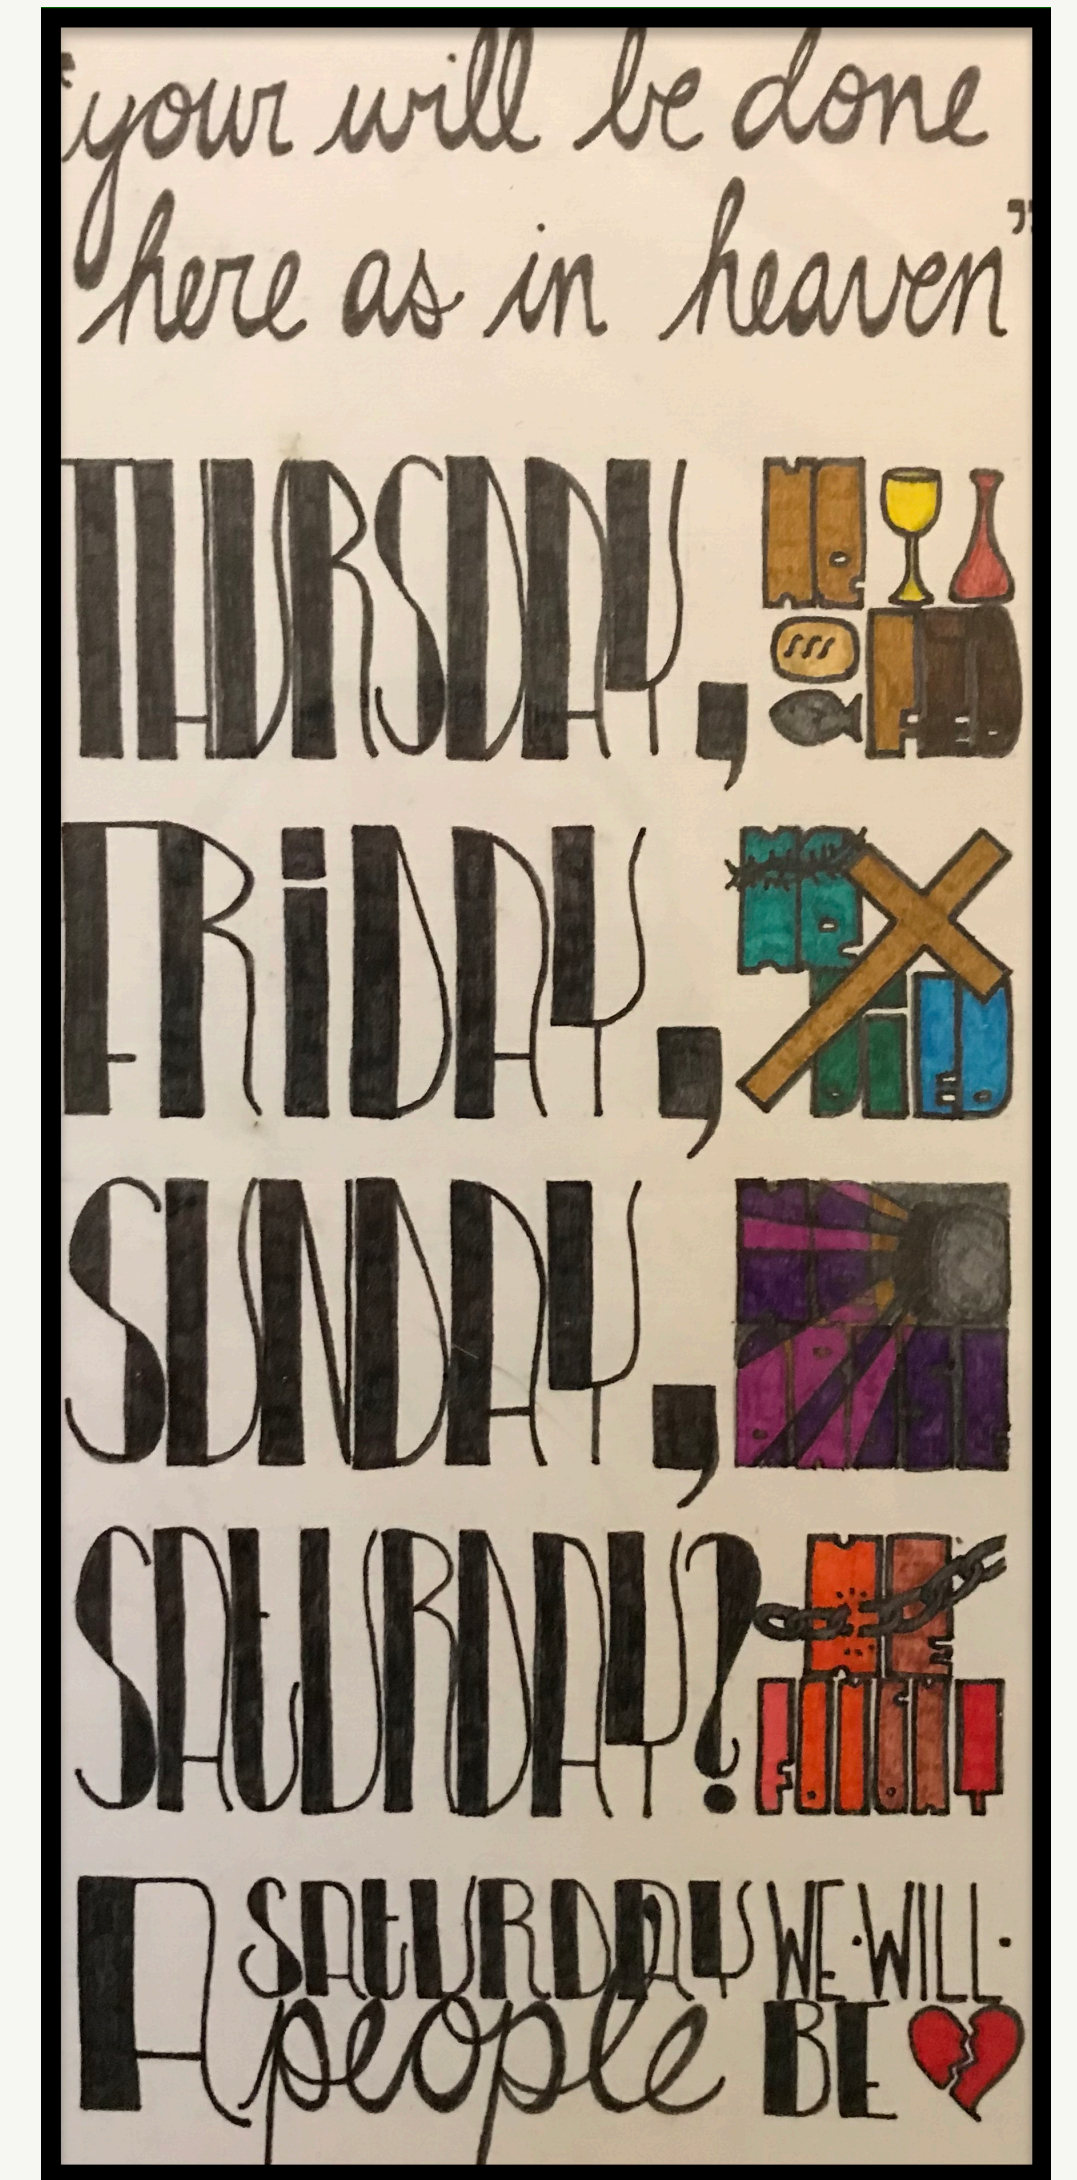 "your will be done
here as in heaven"
THURSDAY, He
FED
FRiDAY, He
DiED
SUNDAY, He
SAtURDAY? HE
FOUGHT
A SAtURDAY WE·WILL·
people BE